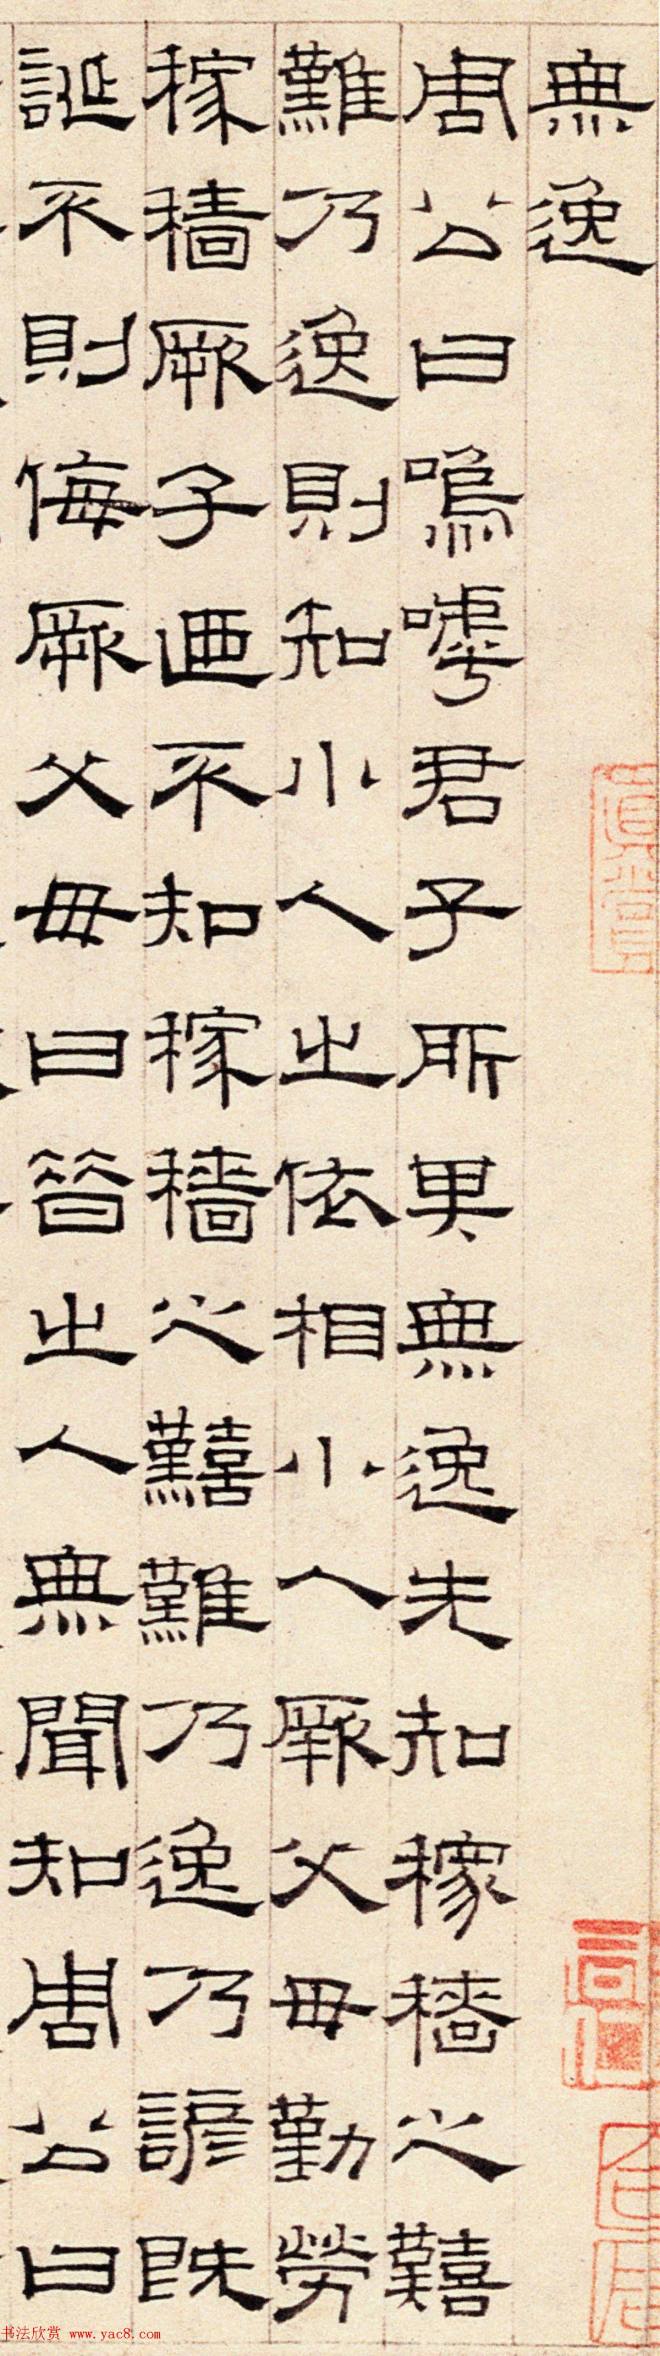 無逸
周公曰嗚嘑君子所其無逸先知稼穡之囏
難乃逸則知小人之依相小人厥父母勤勞
稼穡厥子迺不知稼穡之囏難乃逸乃諺既
誕不則侮厥父母曰昔之人無聞知周公曰
书法欣赏 www.yac8.com